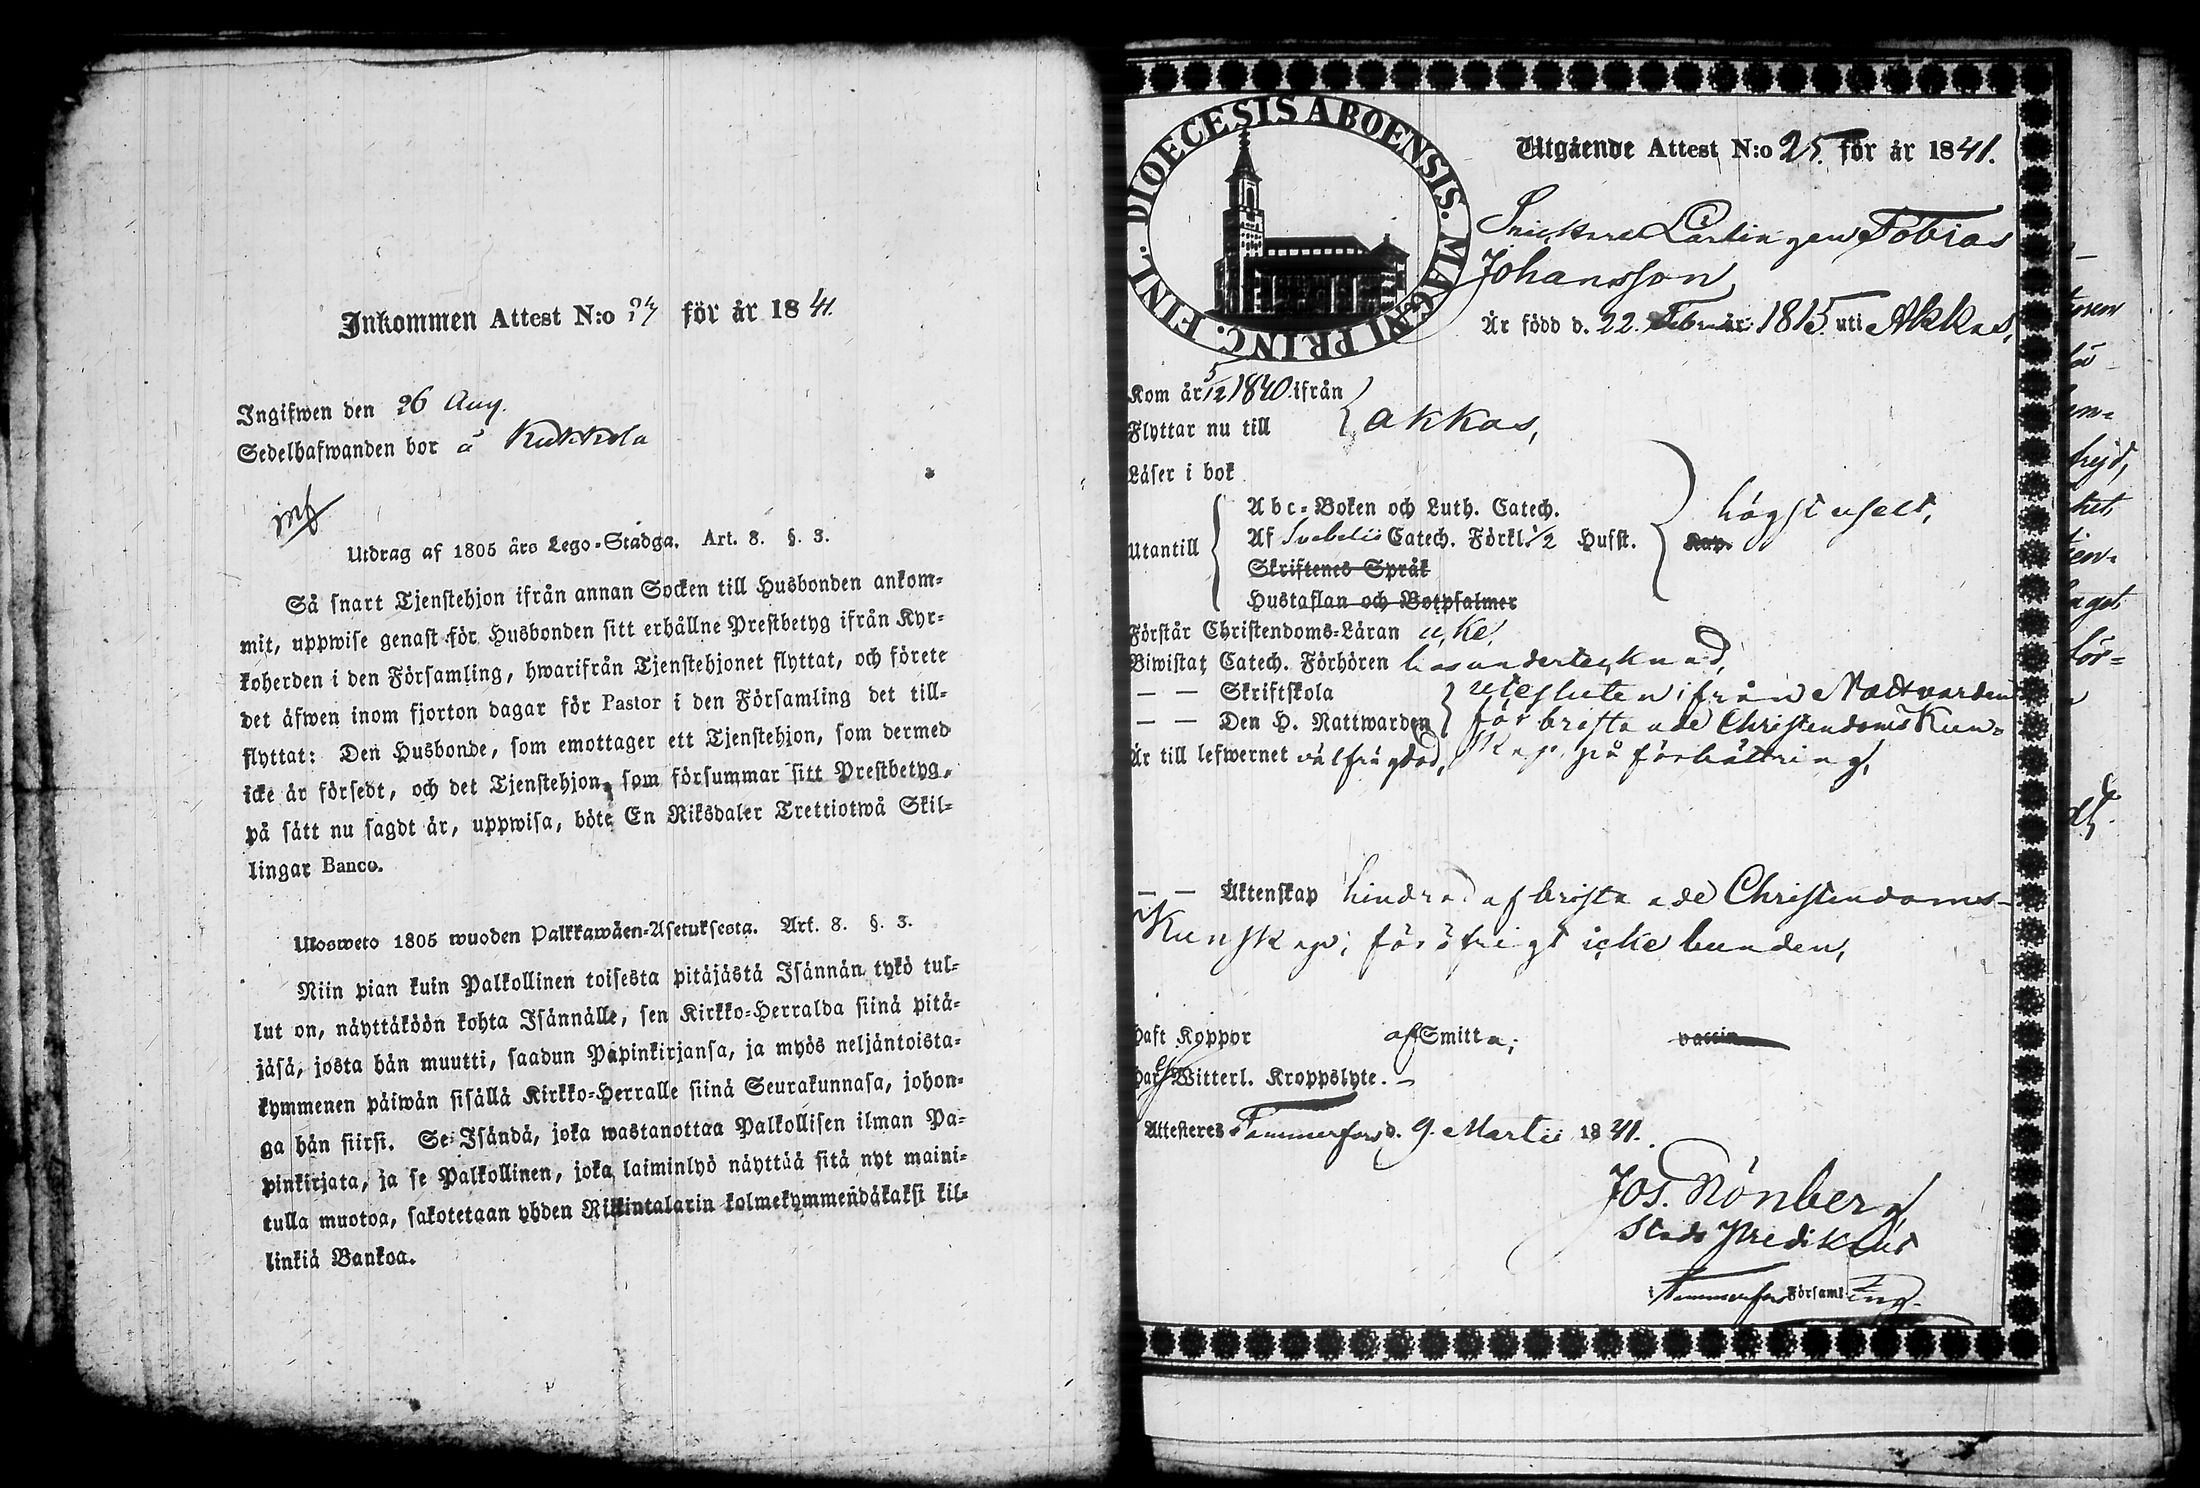 Inkommen Attest N:o 24 för år 1841.
Ingifwen den 26 Aug.
Sedelhafwanden bor å Kukkola
inf
Utdrag af 1805 års Lego-Stadga. Art. 8. §. 3.
Så snart Tjenstehjon ifrån annan Socken till Husbonden ankom-
mit, uppwise genast för Husbonden sitt erhållne Prestbetyg ifrån Kyr-
koherden i den Församling, hwarifrån Tjenstehjonet flyttat, och förete
det äfwen inom fjorton dagar för Pastor i den Församling det till-
flyttat: Den Husbonde, som emottager ett Tjenstehjon, som dermed
icke är försedt, och det Tjenstehjon, som försummar sitt Prestbetyg,
på sätt nu sagdt är, uppwisa, böte En Riksdaler Trettiotwå Skil-
lingar Banco.
Ulosweto 1805 wuoden Palkkawäen-Asetuksesta. Art. 8. §. 3.
Niin pian kuin Palkollinen toisesta pitäjästä Isännän tykö tul-
lut on, näyttäköön kohta Isännälle, sen Kirkko-Herralda siinä pitä-
jäsä, josta hän muutti, saadun Papinkirjansa, ja myös neljäntoista-
kymmenen päiwän sisällä Kirkko-Herralle siinä Seurakunnasa, johon-
ga hän siirsi. Se Isändä, joka wastanottaa Palkollisen ilman Pa-
pinkirjata, ja se Palkollinen, joka laiminlyö näyttää sitä nyt maini-
tulla muotoa, sakotetaan yhden Rikintalarin kolmekymmendäkaksi kil-
linkiä Bankoa.
DIOECESIS ABOENSIS. MAGNI PRINC. FINL.
Utgående Attest N:o 25. för år 1841.
Snickare Lärlingen Tobias
Johansson
Är född d. 22. Februar: 1815. uti Akkas,
Kom år 5/12 1840. ifrån
Flyttar nu till } Akkas,
Läser i bok
Abc-Boken och Luth. Catech.
Utantill Af Svebelii Catech. Förkl. 1/2 Husst. högst uselt, Kap.
Skriftenes Språk
Hustaflan och Botpsalmer
Förstår Christendoms-Läran icke.
Biwistat Catech. Förhören hos undertecknad,
— — Skriftskola utesluten ifrån Nattvarden
— — Den H. Nattwarden för bristande Christendoms Kun-
Är till lefwernet välfrägdad, skap på förbättring,
— — Äktenskap hindrad af bristande Christendoms-
Kunskap; för öfrigt icke bunden,
Haft Koppor af Smitta; vaccin
Har ej Witterl. Kroppslyte. —
Attesteres Tammerfors d. 9. Martii 1841.
Jos. Rönberg
Stads Predikant
i Tammerfors Församling.